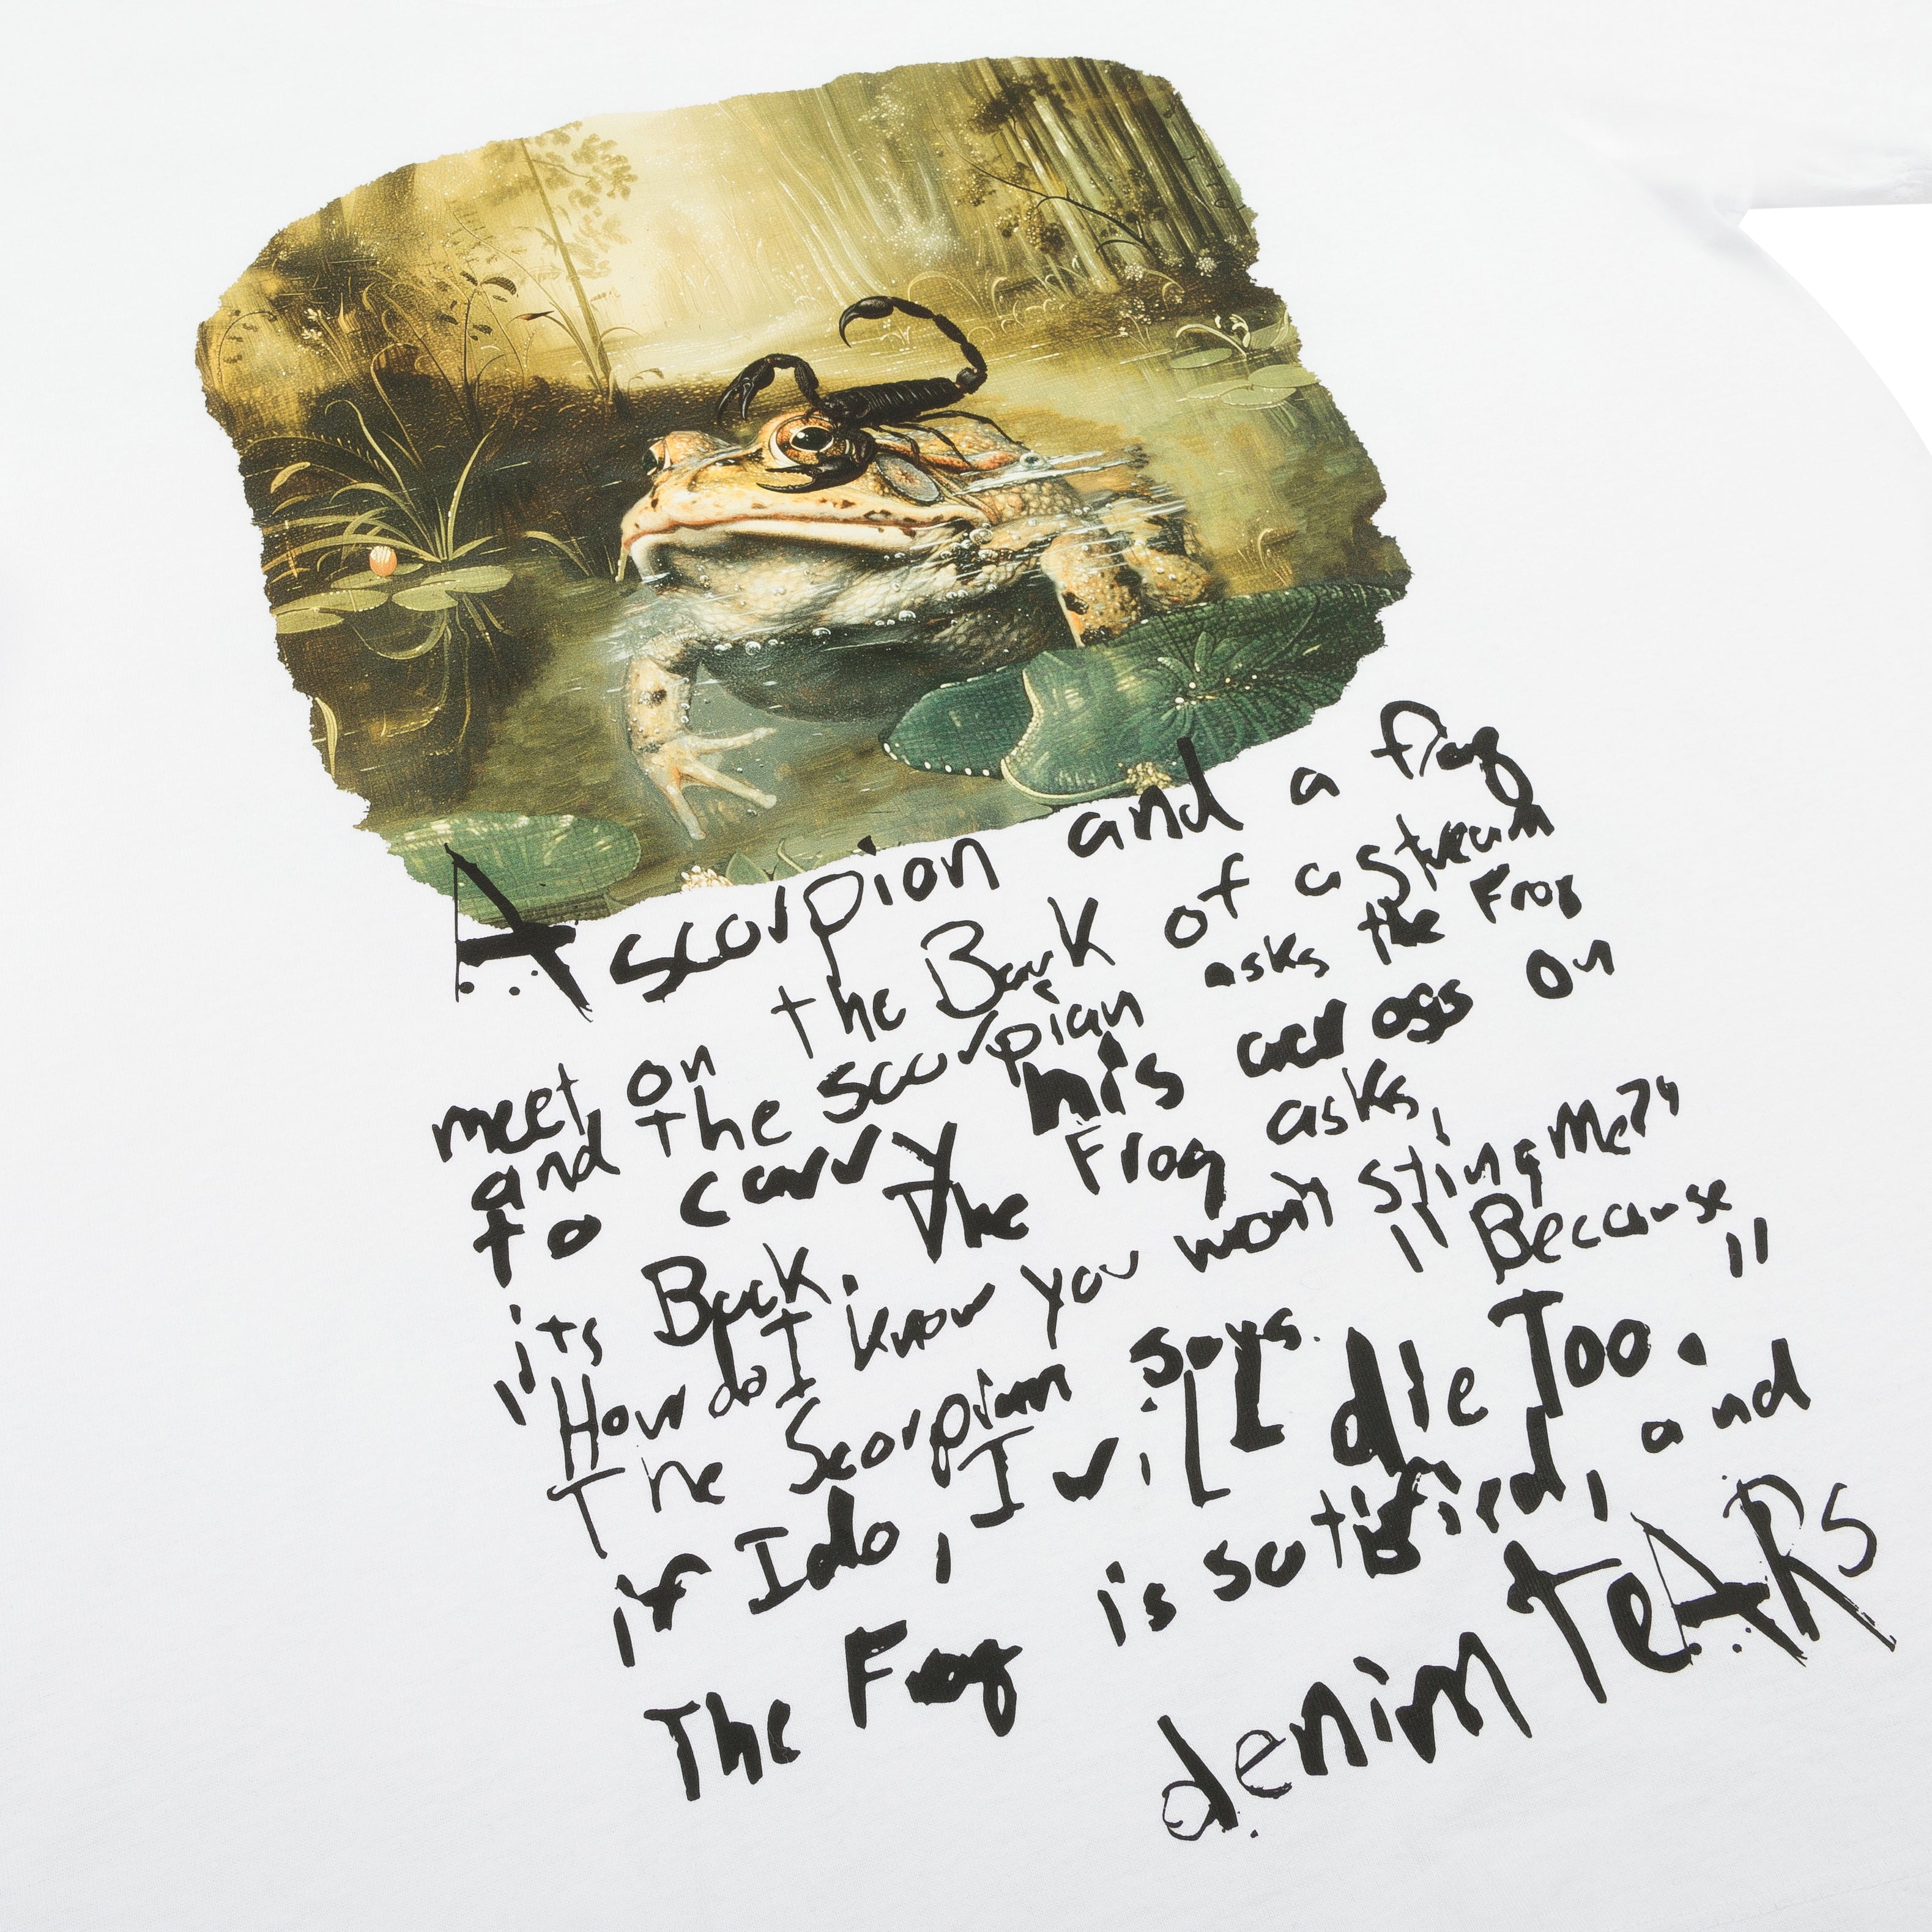 A scorpion and a frog
meet on the Back of a stream
and the scorpian asks the Frog
to carry his across on
its Back. The Frog asks,
"How do I know you won't sting Me?"
The Scorpian says. "Because
if I do, I wiLL die Too."
The Frog is satisfied, and
denim teARs